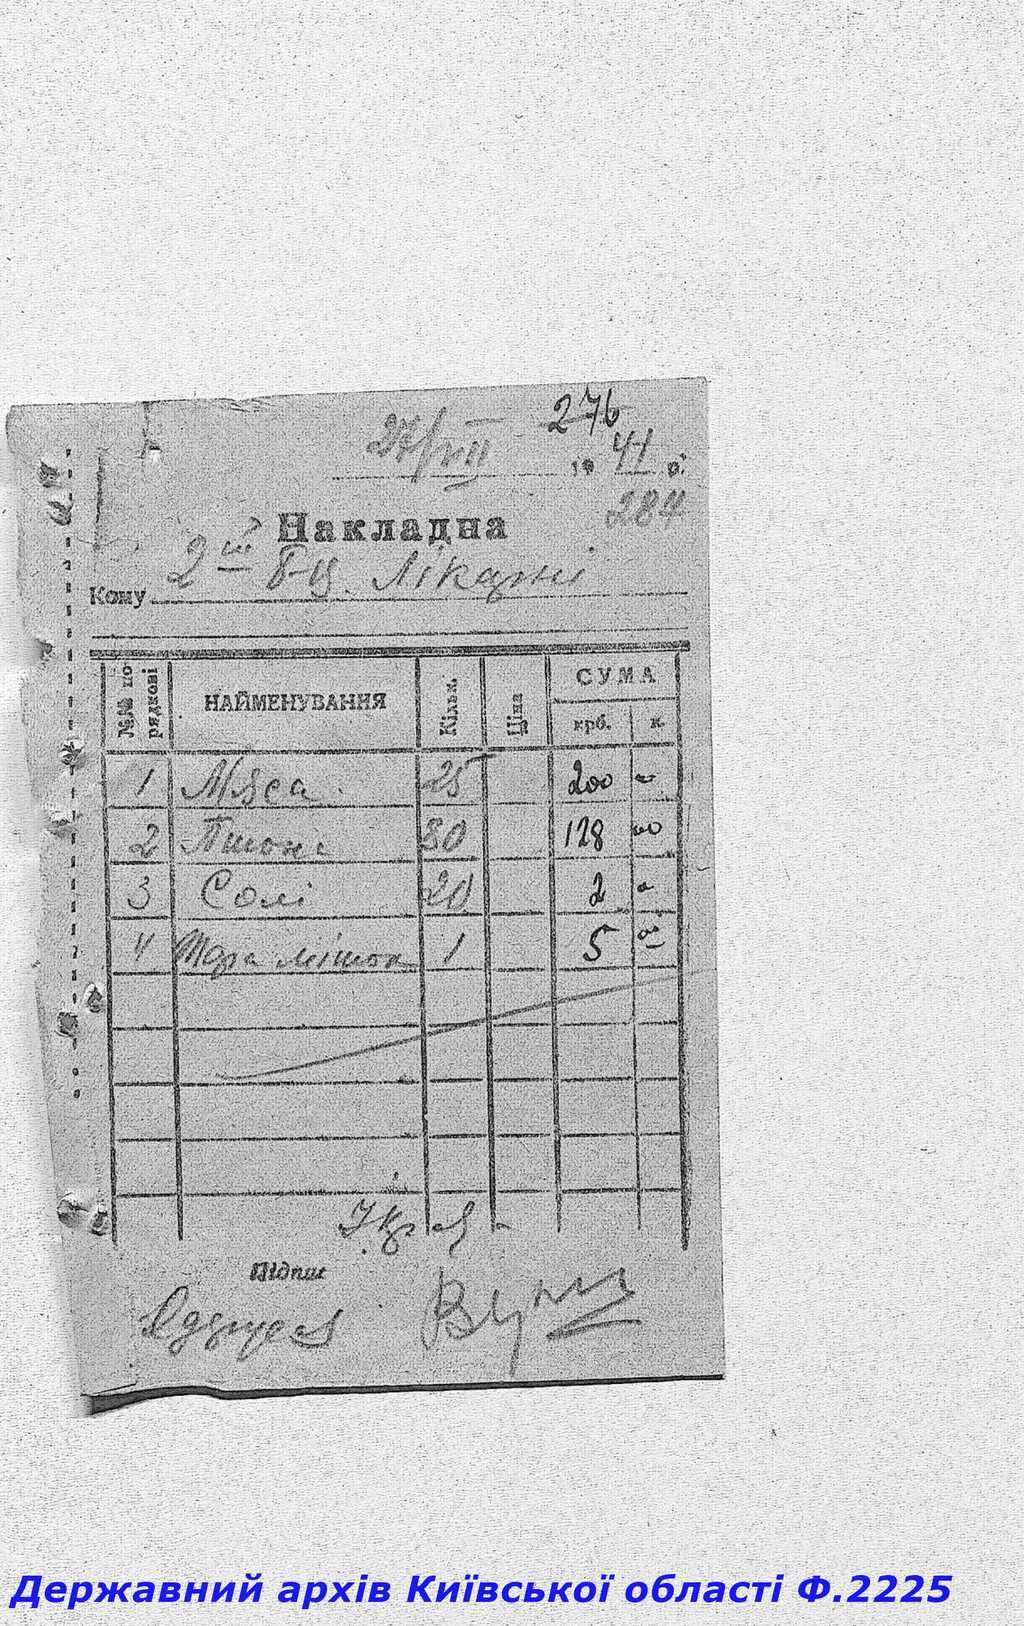 276
1941 р.
284
Накладна
2ій б-ці Лікарні
Кому
№№ по рядкові НАЙМЕНУВАННЯ Кільк. Ціна СУМА крб. к.
1 Мяса 25 200 -
2 Пшоно 80 128 00
3 Солі 20 2 -
4 Тара мішок 1 5 00
Підпис
Державний архів Київської області Ф.2225